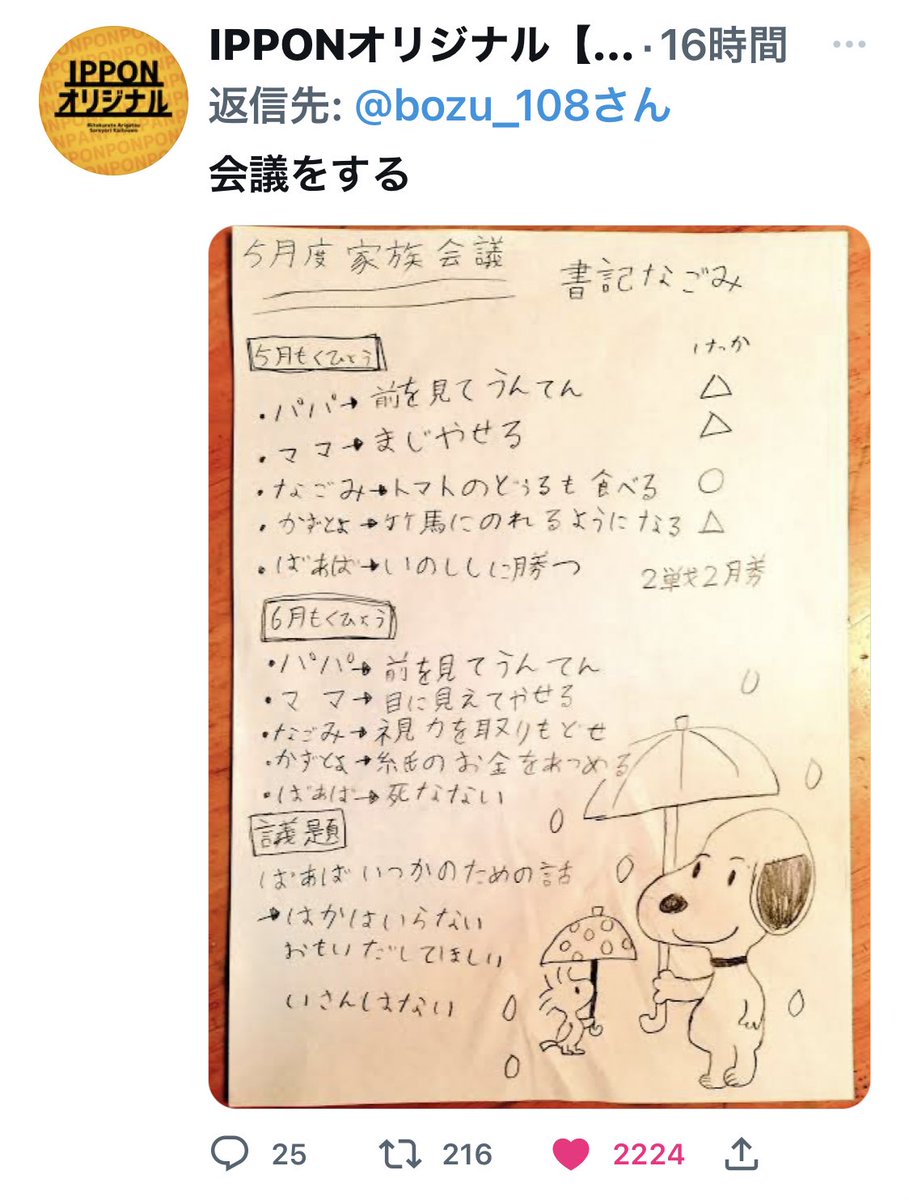 IPPON
オリジナル
IPPONオリジナル【... · 16時間
返信先: @bozu_108さん
会議をする
5月度 家族会議
書記なごみ
5月もくひょう
けっか
・パパ→前を見てうんてん △
・ママ→まじやせる △
・なごみ→トマトのどぅるも食べる ○
・かずとよ→竹馬にのれるようになる △
・ばあば→いのししに勝つ 2戦2勝
6月もくひょう
・パパ→前を見てうんてん
・ママ→目に見えてやせる
・なごみ→視力を取りもどせ
・かずとよ→紙のお金をあつめる
・ばあば→死なない
議題
ばあばいつかのための話
→はかはいらない
おもいだしてほしい
いさんはない
25 216 2224